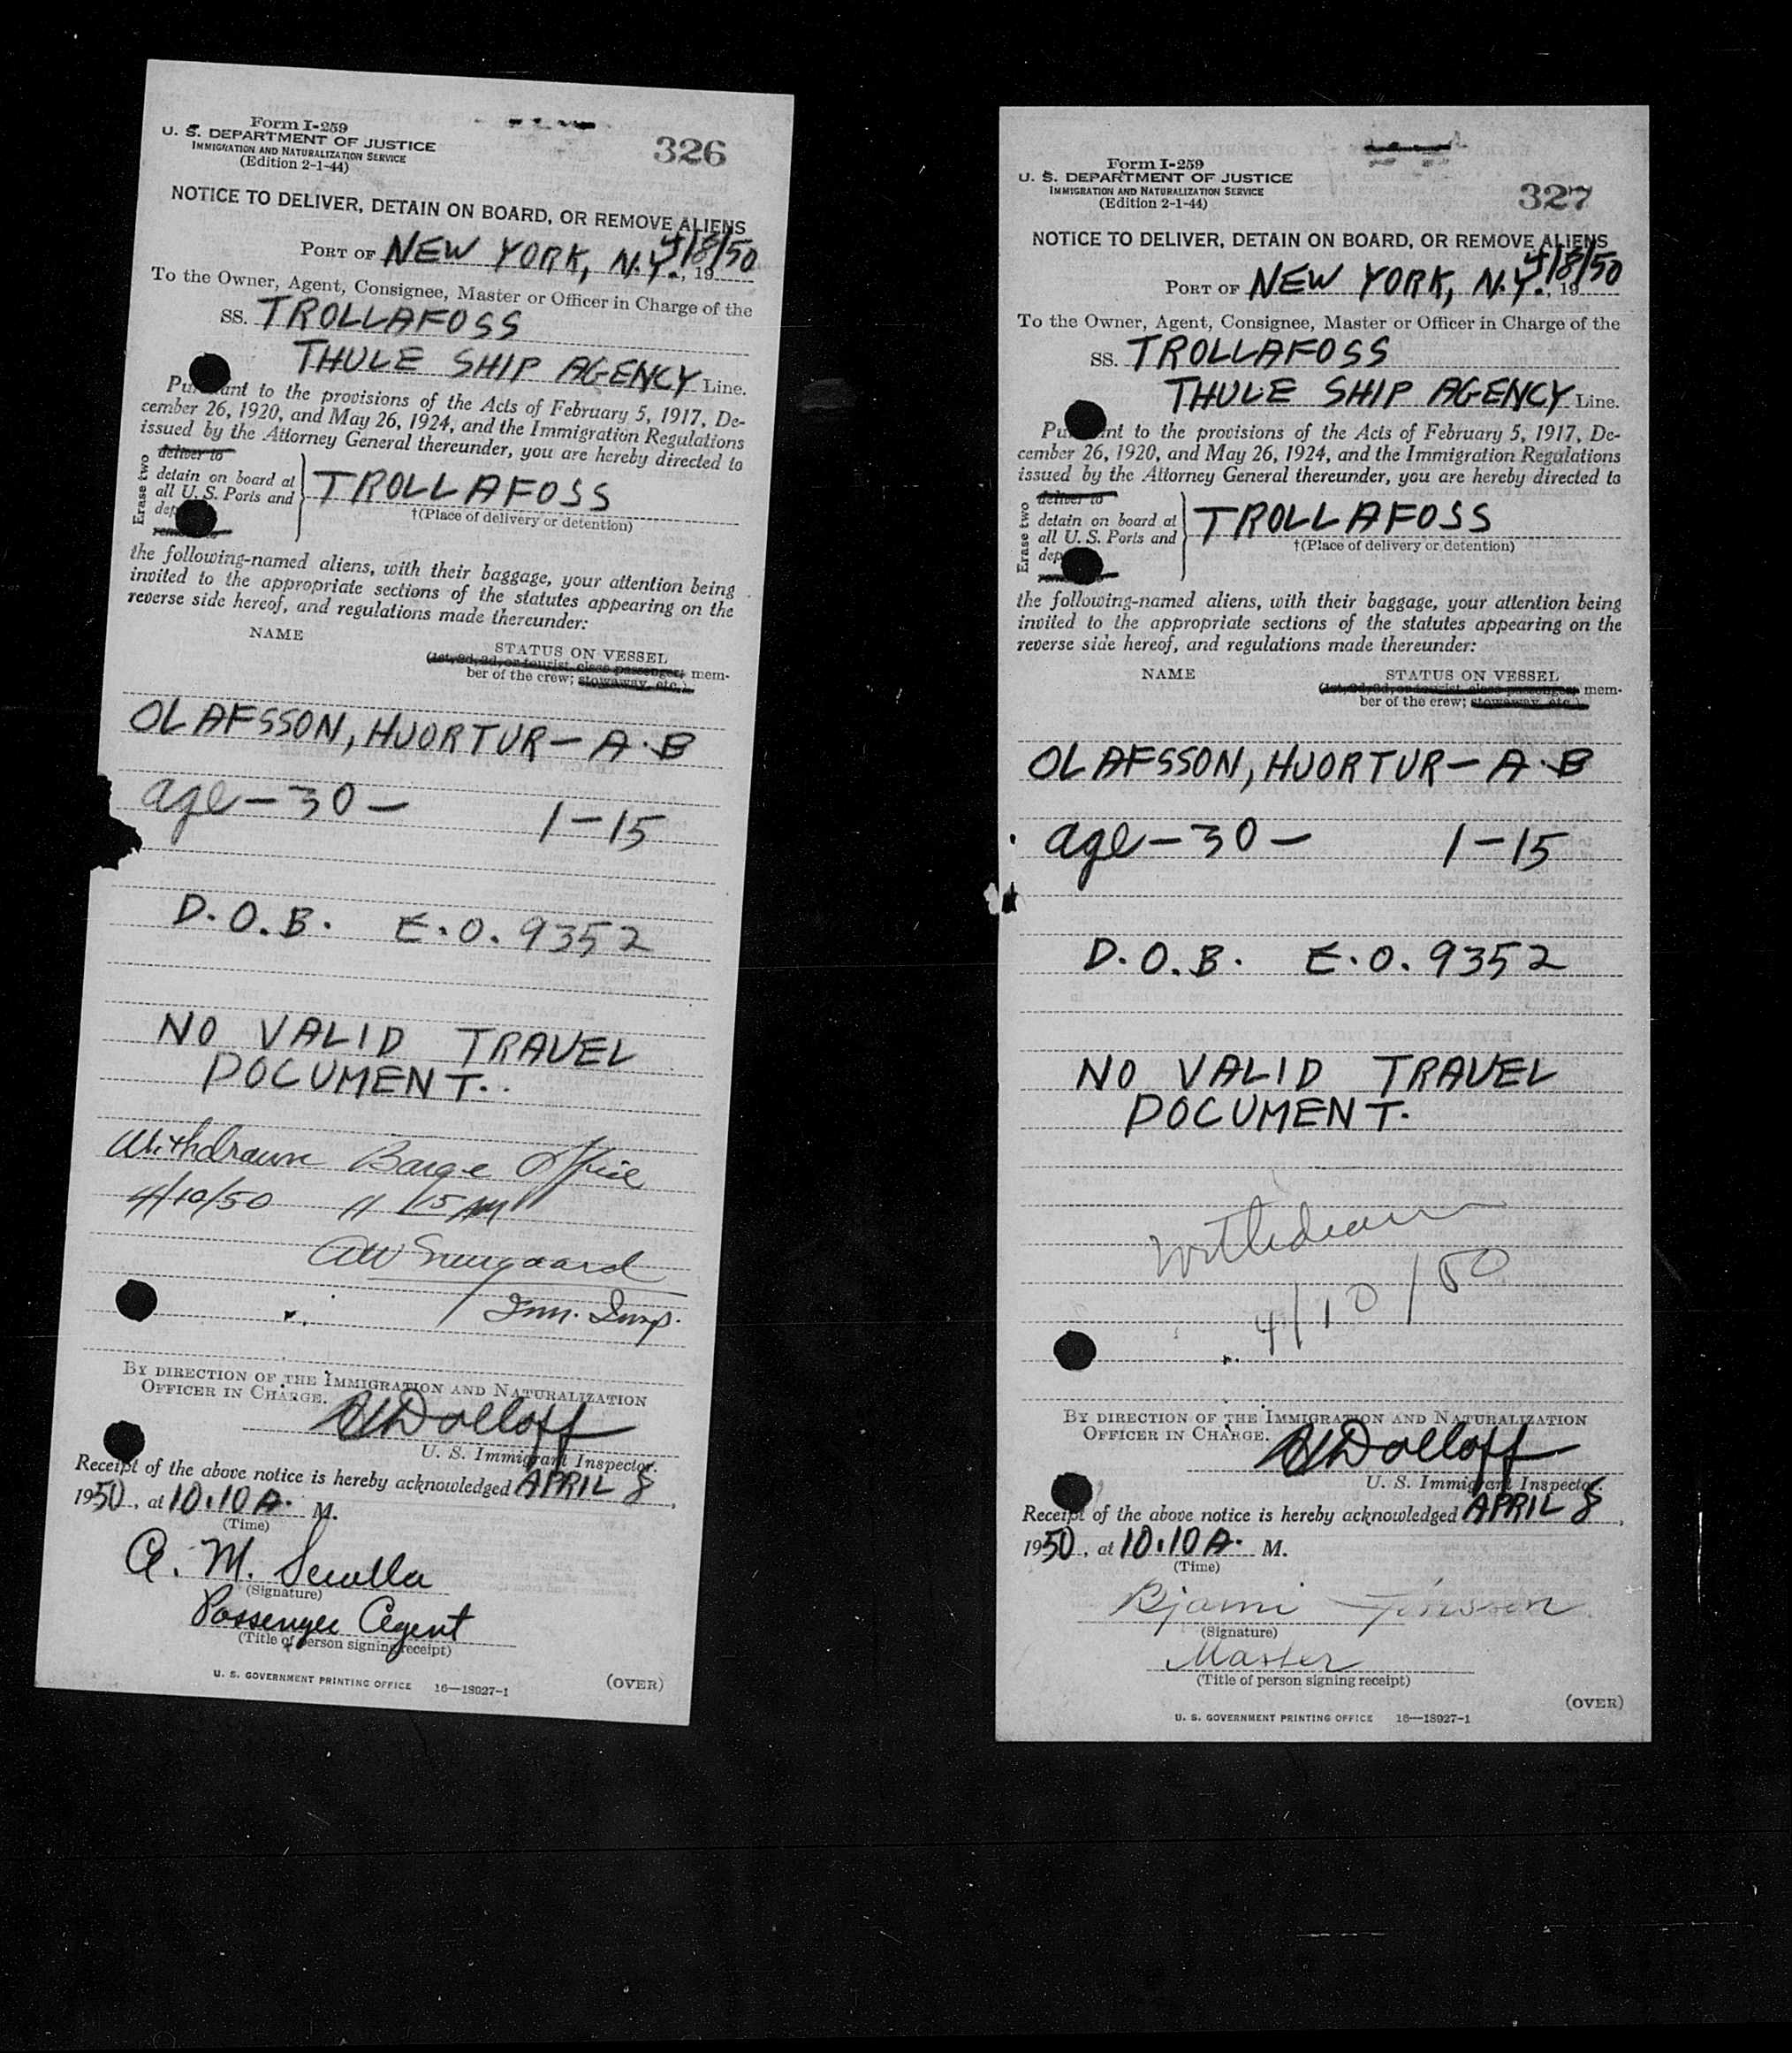 Form I-259
U. S. DEPARTMENT OF JUSTICE
IMMIGRATION AND NATURALIZATION SERVICE
(Edition 2-1-44)
326
NOTICE TO DELIVER, DETAIN ON BOARD, OR REMOVE ALIENS
PORT OF NEW YORK, N.Y., 19 4/8/50
To the Owner, Agent, Consignee, Master or Officer in Charge of the
SS. TROLLAFOSS
THULE SHIP AGENCY Line.
Pursuant to the provisions of the Acts of February 5, 1917, De-
cember 26, 1920, and May 26, 1924, and the Immigration Regulations
issued by the Attorney General thereunder, you are hereby directed to
Erase two
deliver to
detain on board at
all U. S. Ports and
dep
remove to
TROLLAFOSS
†(Place of delivery or detention)
the following-named aliens, with their baggage, your attention being
invited to the appropriate sections of the statutes appearing on the
reverse side hereof, and regulations made thereunder:
NAME
STATUS ON VESSEL
(1st, 2d, 3d, or tourist class passenger; mem-
ber of the crew; stowaway, etc.)
OLAFSSON, HJORTUR - A.B
age - 30 - 1-15
D.O.B. E.O. 9352
NO VALID TRAVEL
DOCUMENT.
Withdrawn Barge Office
4/10/50 11 15 AM
Imm. Insp.
BY DIRECTION OF THE IMMIGRATION AND NATURALIZATION
OFFICER IN CHARGE.
Dolloff
U. S. Immigrant Inspector.
Receipt of the above notice is hereby acknowledged APRIL 8,
1950, at 10.10 A. M.
(Time)
A. M.
(Signature)
Passenger Agent
(Title of person signing receipt)
U. S. GOVERNMENT PRINTING OFFICE 16—18927-1
(OVER)
Form I-259
U. S. DEPARTMENT OF JUSTICE
IMMIGRATION AND NATURALIZATION SERVICE
(Edition 2-1-44)
327
NOTICE TO DELIVER, DETAIN ON BOARD, OR REMOVE ALIENS
PORT OF NEW YORK, N.Y., 19 4/8/50
To the Owner, Agent, Consignee, Master or Officer in Charge of the
SS. TROLLAFOSS
THULE SHIP AGENCY Line.
Pursuant to the provisions of the Acts of February 5, 1917, De-
cember 26, 1920, and May 26, 1924, and the Immigration Regulations
issued by the Attorney General thereunder, you are hereby directed to
Erase two
deliver to
detain on board at
all U. S. Ports and
dep
remove to
TROLLAFOSS
†(Place of delivery or detention)
the following-named aliens, with their baggage, your attention being
invited to the appropriate sections of the statutes appearing on the
reverse side hereof, and regulations made thereunder:
NAME
STATUS ON VESSEL
(1st, 2d, 3d, or tourist class passenger; mem-
ber of the crew; stowaway, etc.)
OLAFSSON, HJORTUR - A.B
age - 30 - 1-15
D.O.B. E.O. 9352
NO VALID TRAVEL
DOCUMENT.
Withdrawn
4/10/50
BY DIRECTION OF THE IMMIGRATION AND NATURALIZATION
OFFICER IN CHARGE.
Dolloff
U. S. Immigrant Inspector.
Receipt of the above notice is hereby acknowledged APRIL 8,
1950, at 10.10 A. M.
(Time)
Bjarni
(Signature)
Master
(Title of person signing receipt)
(OVER)
U. S. GOVERNMENT PRINTING OFFICE 16—18927-1